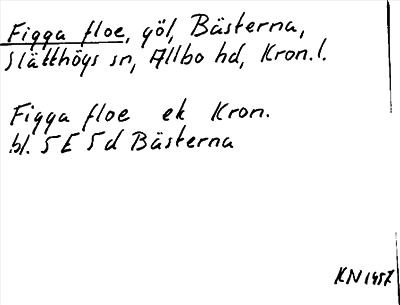 Figga floe, göl, Bästerna,
Slätthögs sn, Allbo hd, Kron.l.
Figga floe ek Kron.
bl. 5E 5d Bästerna
KN 1957